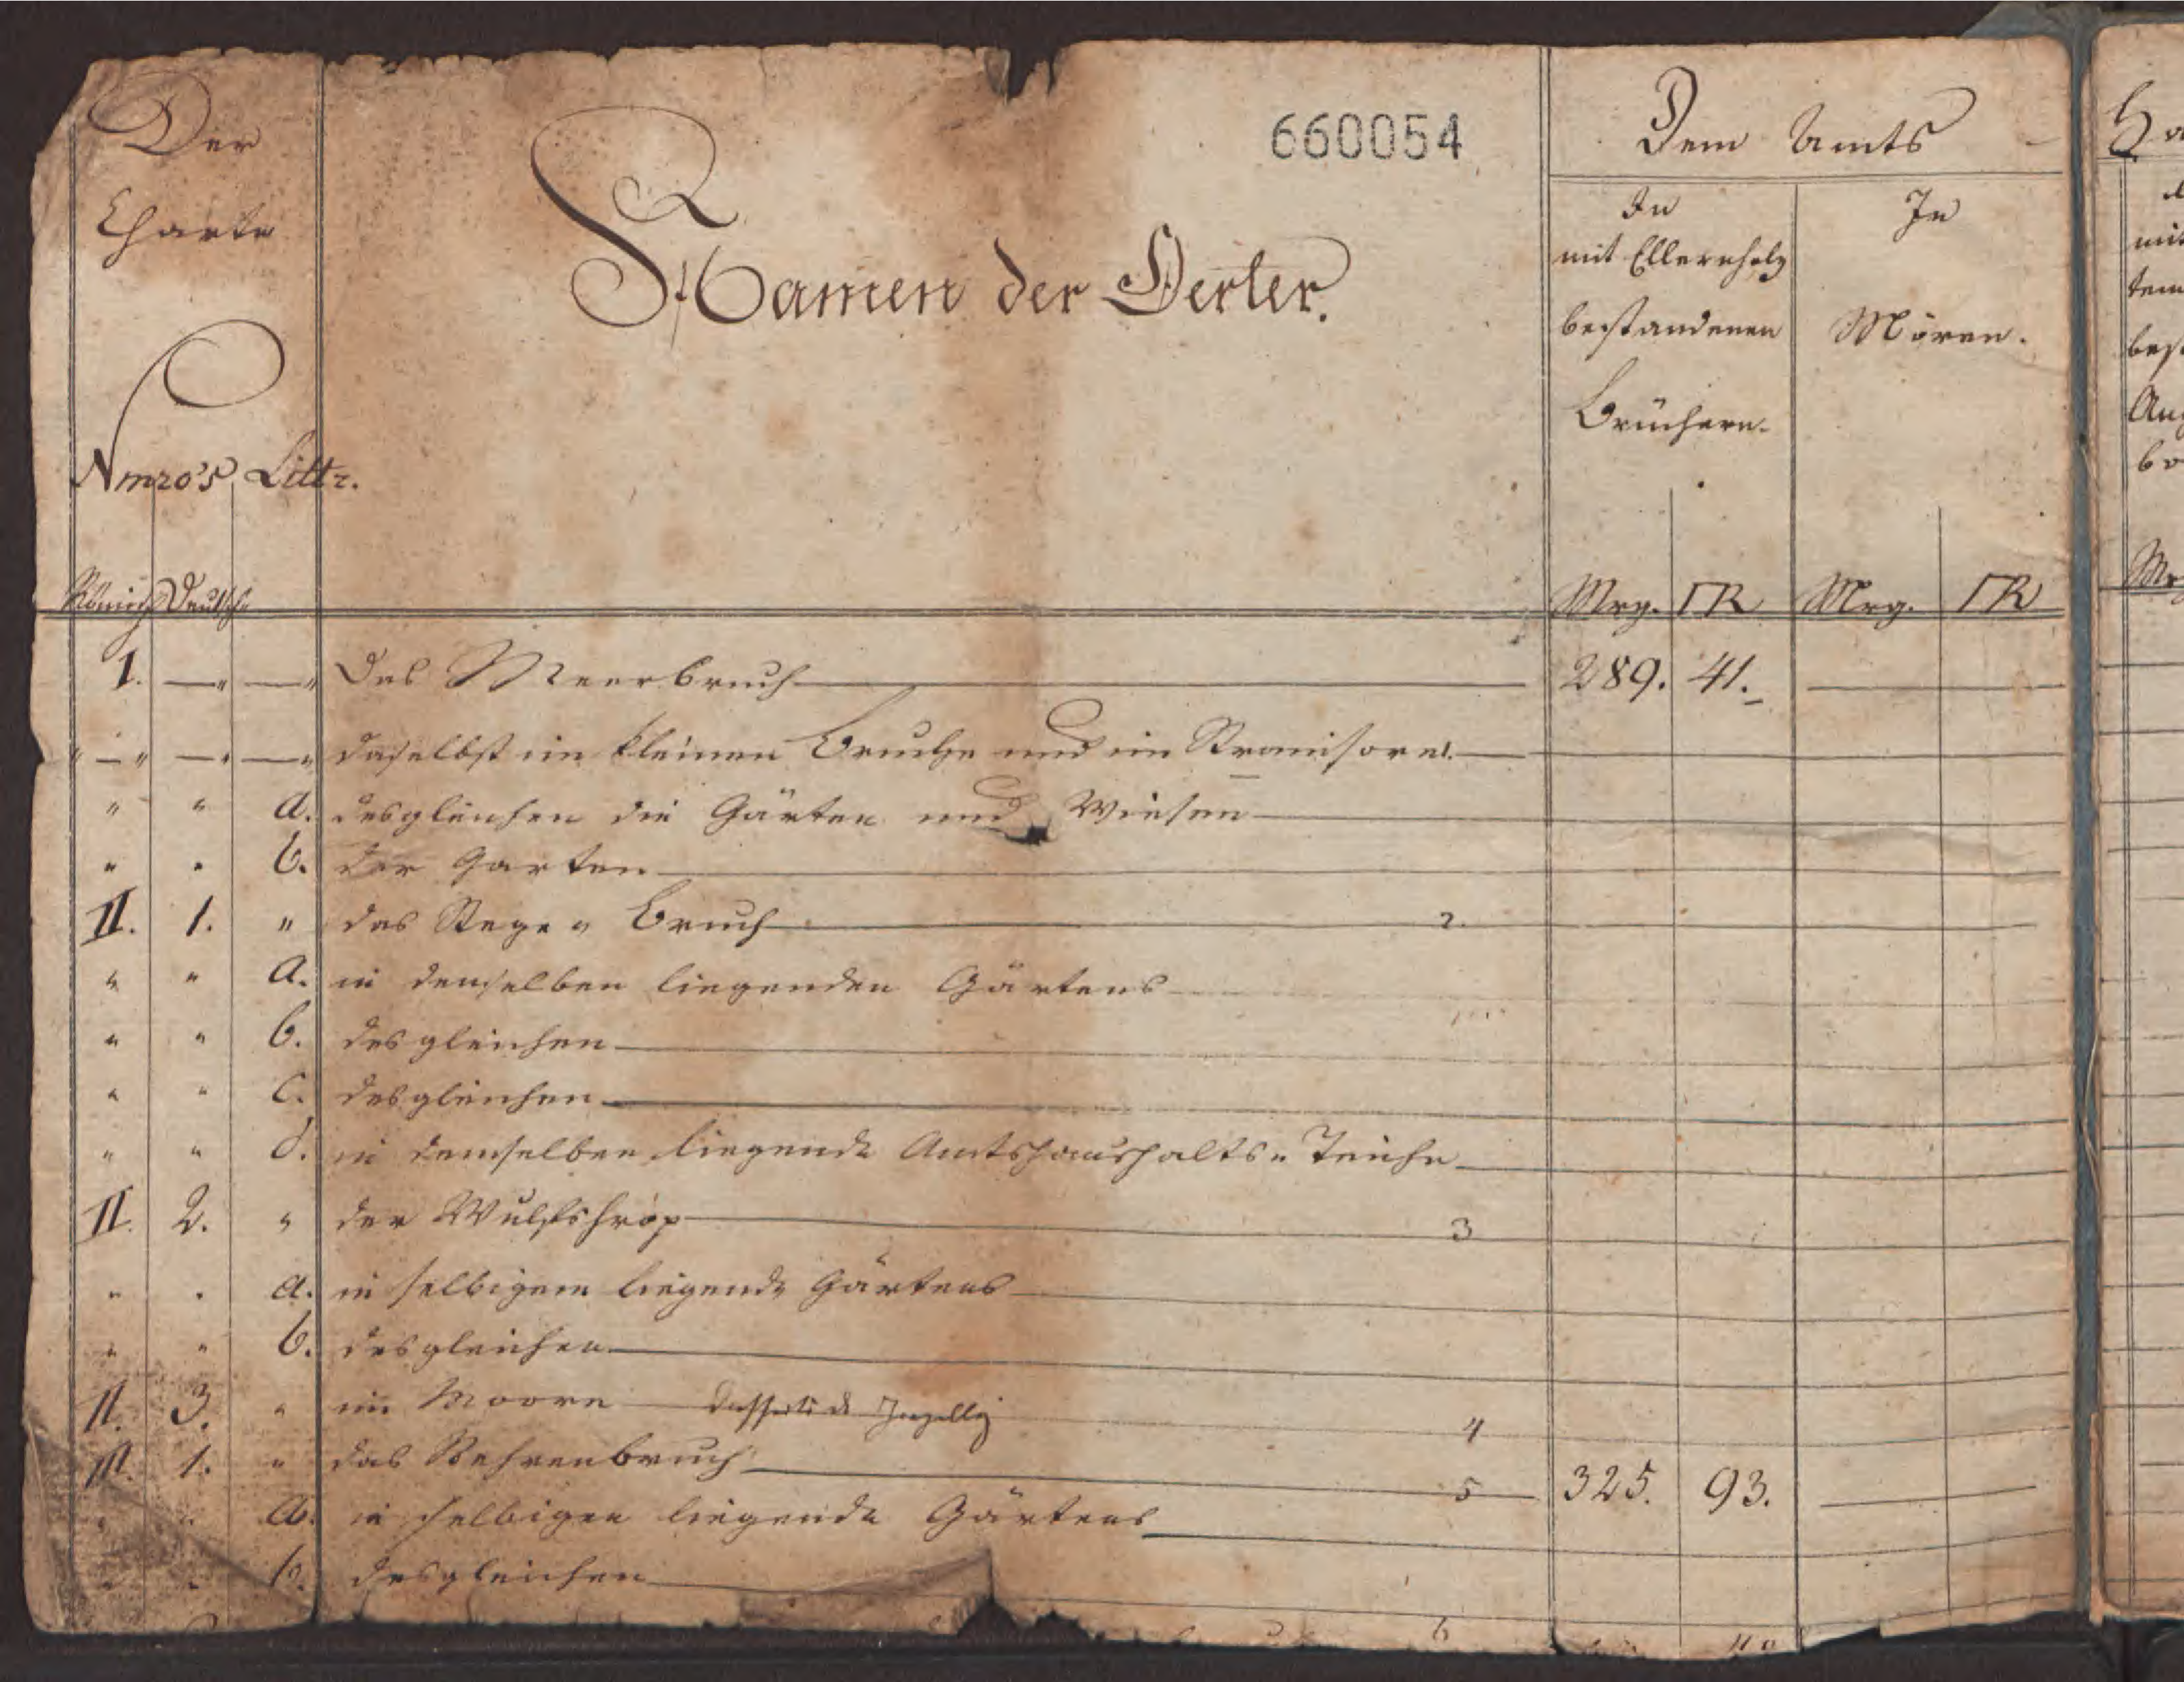 Der
Charte
Nmro's Littr.
Römisch Deutsche
Namen der Oerter.
660054
Dem Amts
In
mit Ellernholz
bestandenen
Brüchern.
In
Mören.
Mrg. □R Mrg. □R
I. — " — " Das Meerbruch 289. 41.
" — " — " — " daselbst im kleinen Bruche und im
" " a. desgleichen die Gärten und Wiesen
" " b. der Garten
II. 1. " das Stege " Bruch 2.
" " a. in denselben liegenden Gärtens
" " b. desgleichen
" " c. desgleichen
" " d. in demselben liegende Amtshaushalts " Teiche
II. 2. " der Wulfshróp 3
" " a. in selbigem liegende Gärtens
" " b. desgleichen
II. 3. " im Moore 4
III. 1. " das Behrenbruch 5 325. 93.
" " a. in selbigen liegende Gärtens
" " b. desgleichen
6